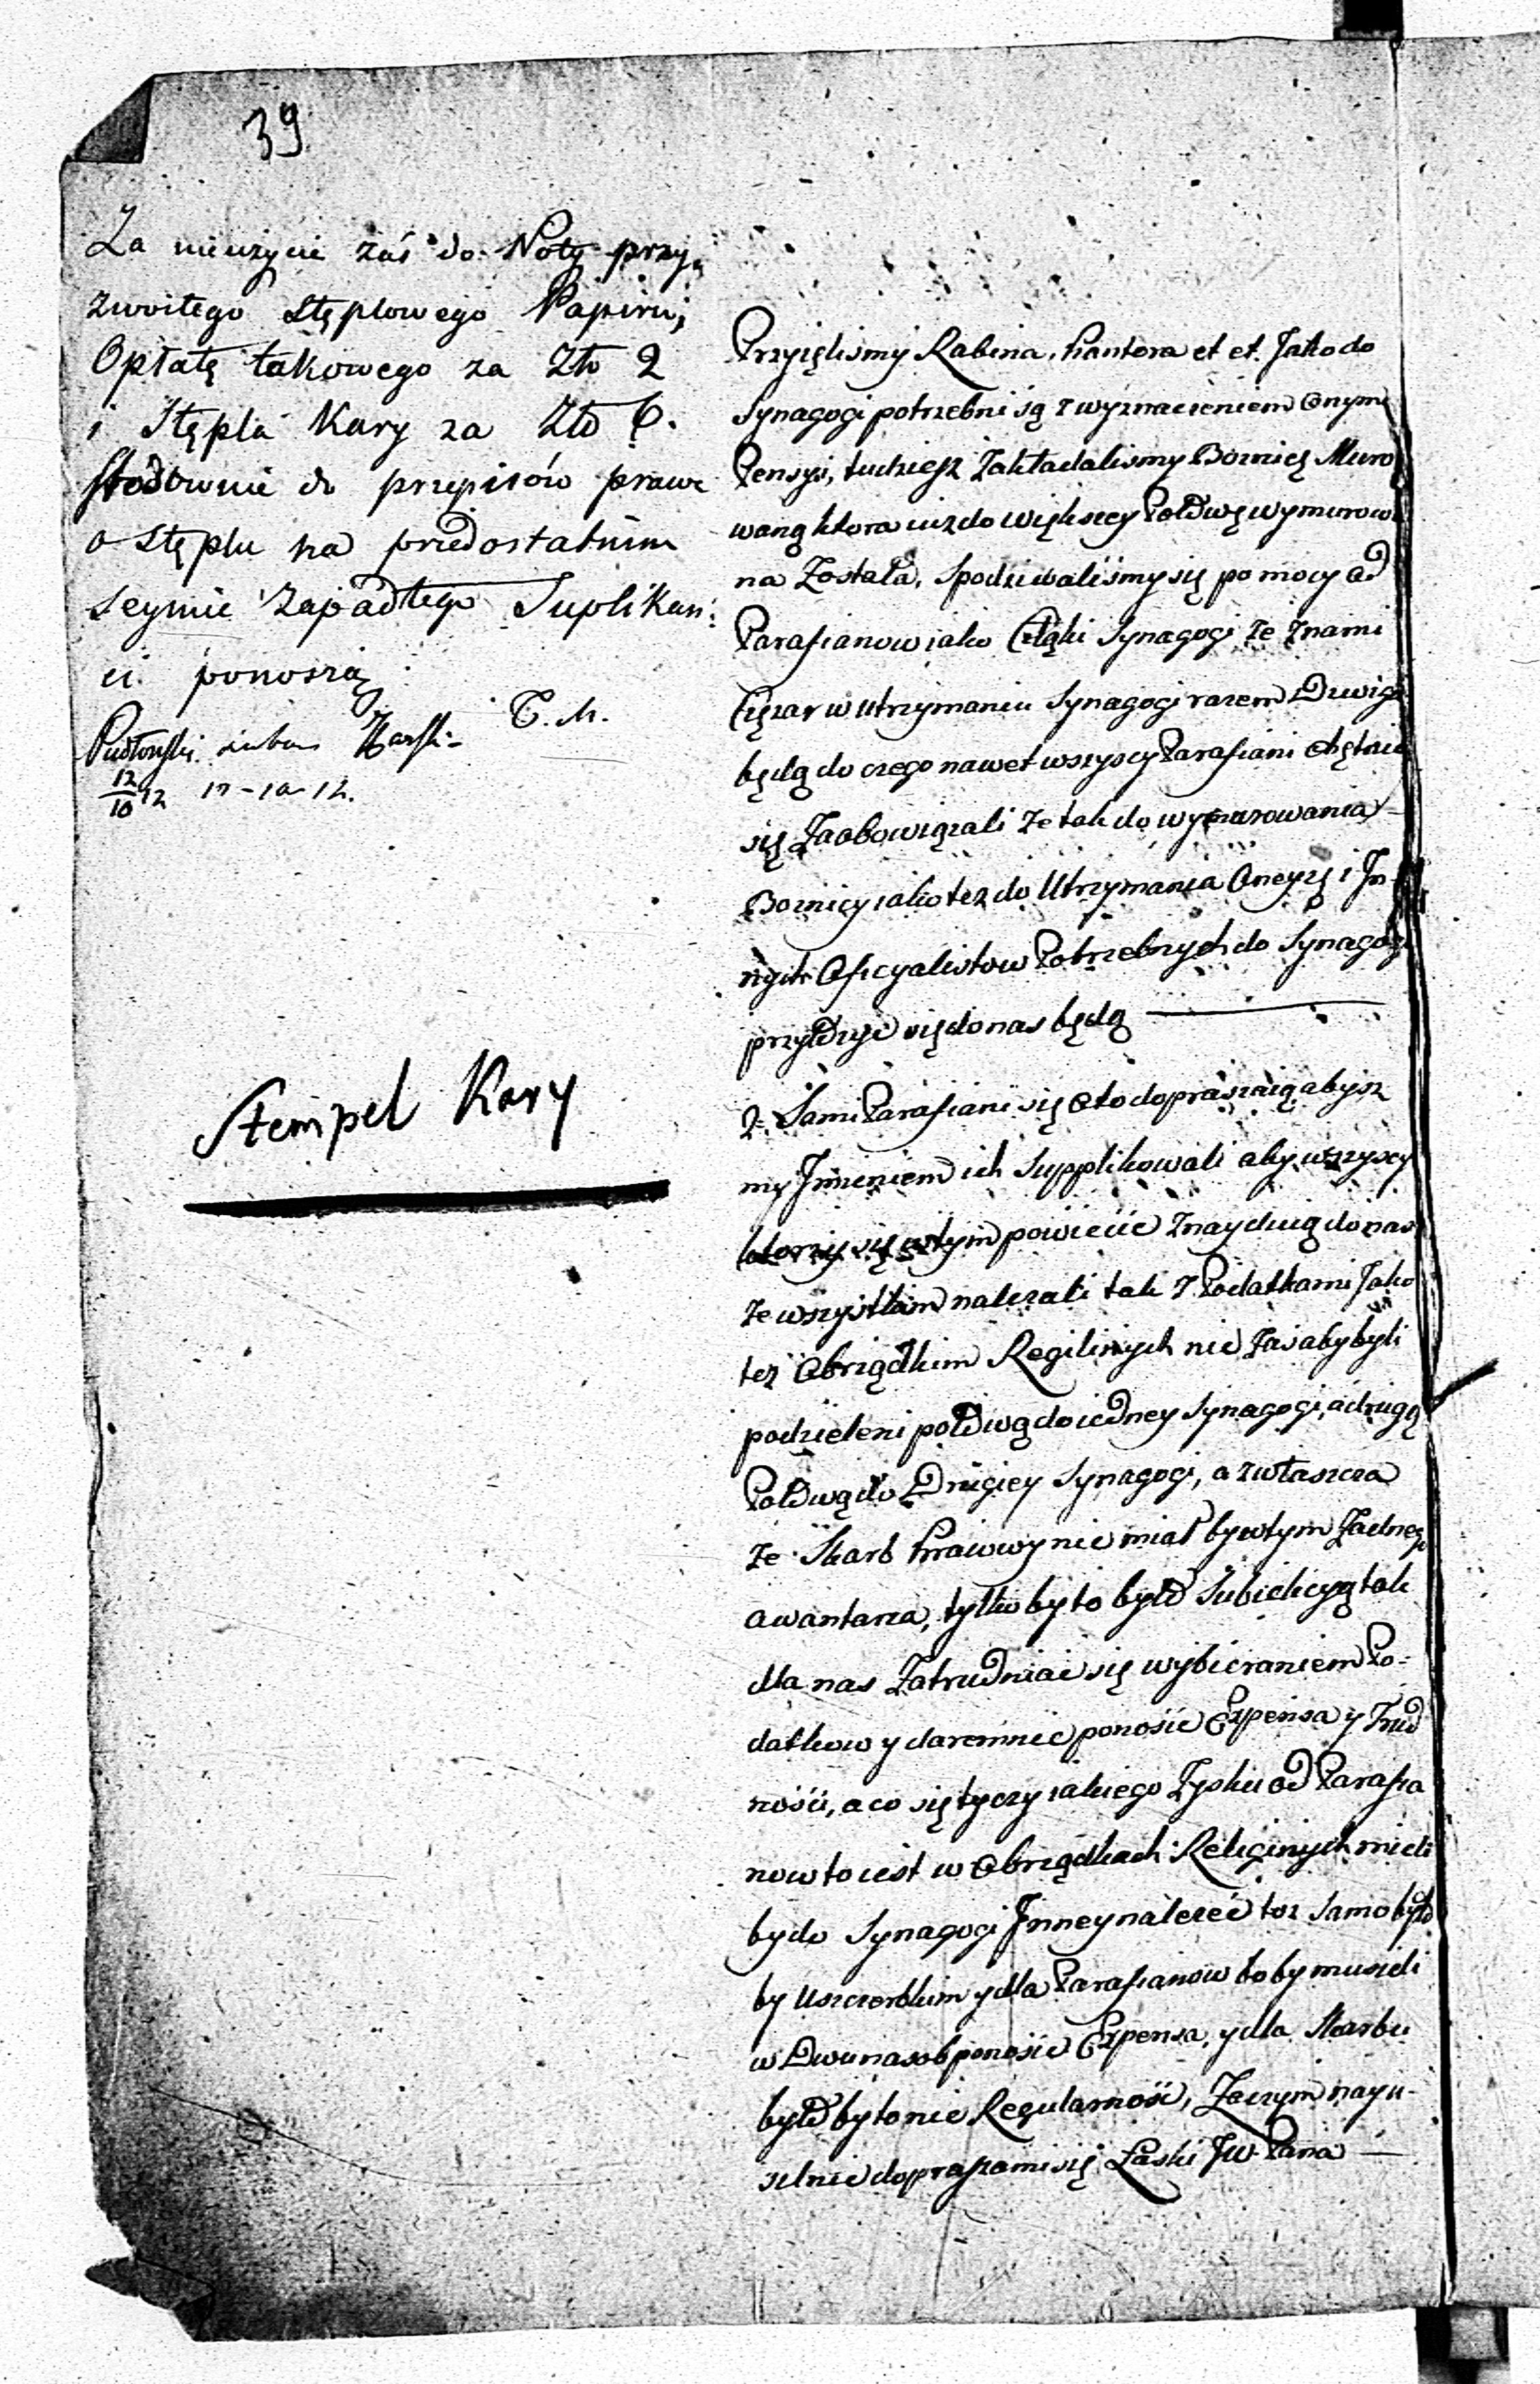 39
Za nieużycie zaś do Noty przy„
zwoitego stęplowego Papiru;
Opłatę takowego za Zło 2
i Stępla Kary za Zło 6.
stosownie do przepisów prawa
o stęplu na przedostatnim
Seymie zapadłego Suplikan„
ci ponoszą
T. M.
12/10 12 17-10-12.
Stempel Kary
Przyięlismy Rabina, Kantora et et. Jako do
Synagogi potrzebni są z wyznaczeniem onym
Pensyi, tudziesz Zakładalismy Boznicę Muro
waną ktora iuz do większey Połowę wymurowa
na Została, spodziwalismy się pomocy od
Parafianow iako Cząłki Synagogi ze znami
Cięzar w utrzymaniu Synagogi razem Dzwigać
będą do czego nawet wszyscy Parafiani chętnie
się Zaobowiązali ze tak do wymurowania
Boznicy iako tez do Utrzymania Oneyzę i In-
nych Oficyalistow Potrzebnych do Synagogi
przykładzać się do nas będą
2. Sami Parafiani się oto dopraszaią abysz
my Imieniem ich Supplikowali aby wszyscy
ktorzy się w tym powiecie Znayduią do nas
ze wszystkim nalezali tak z Podatkami Jako
tez Obrządkim Regilinych nie Zas aby byli
podzieleni połową do iedney Synagogi, a drugą
Połową do Drugiey Synagogi, a zwłaszcza
ze Skarb Krawwy nie miał by w tym Zadnego
awantaza, tylko by to było Subiekcyą tak
dla nas Zatrudniać się wybieraniem Po-
datkow y daremnie ponosić Expensa y Trud
ności, a co się tyczy iakiego Zysku od Parafia
now to iest w Obrządkach Religinych mieli
by do Synagogi Inney nalezeć toz samo było
by Uszczerbkim y dla Parafianow bo by musieli
w Dwunasob ponosić Expensa, y dla Skarbu
było by to nie Regularność, Zaczym nayu-
silnie dopraszami się Łaski Jw. Pana